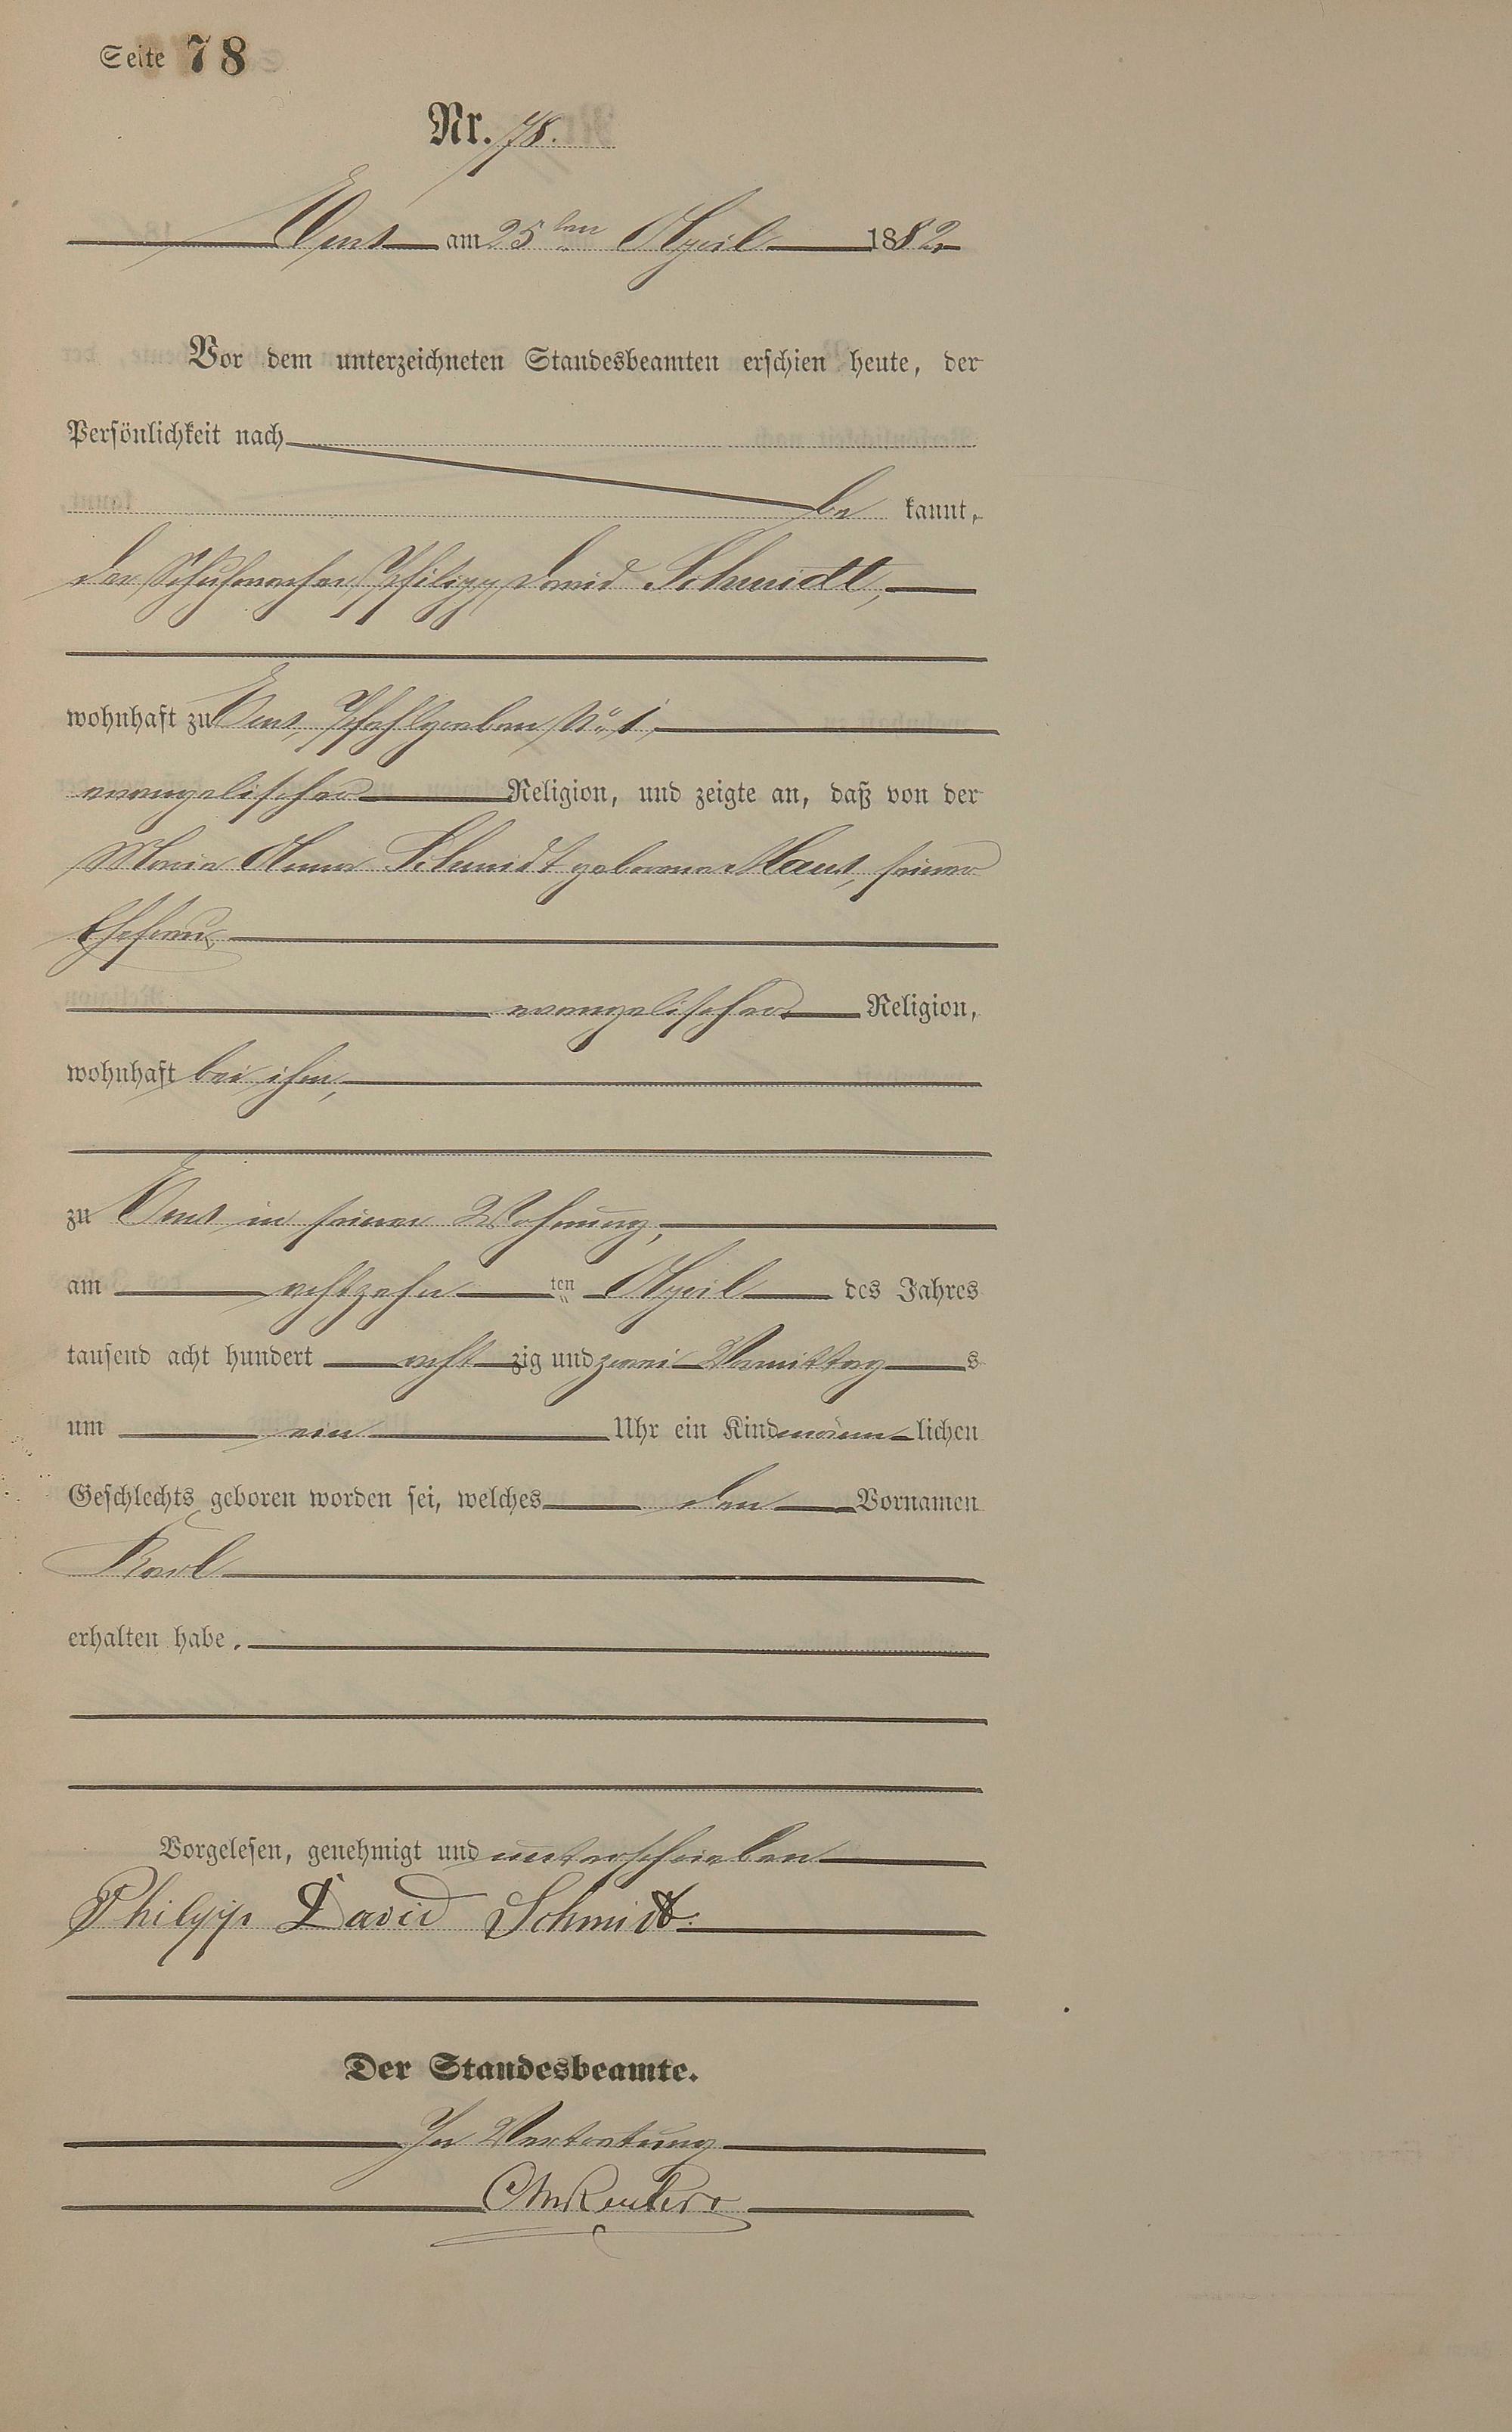 Seite 78
Nr. 78.
Ems am 25ten April 1882
Vor dem unterzeichneten Standesbeamten erschien heute, der
Persönlichkeit nach
be kannt,
der Schuhmacher Philipp David Schmidt,
wohnhaft zu Ems, Pfahlgraben No 1,
evangelischer Religion, und zeigte an, daß von der
Maria Anna Schmidt geborene Haus, seiner
Ehefrau,
evangelischer Religion,
wohnhaft bei ihm,
zu Ems in seiner Wohnung,
am achtzehn ten April des Jahres
tausend acht hundert acht zig und zwei Vormittag s
um ein Uhr ein Kind männ lichen
Geschlechts geboren worden sei, welches den Vornamen
Karl
erhalten habe.
Vorgelesen, genehmigt und unterschrieben
Philipp David Schmidt.
Der Standesbeamte.
In Vertretung